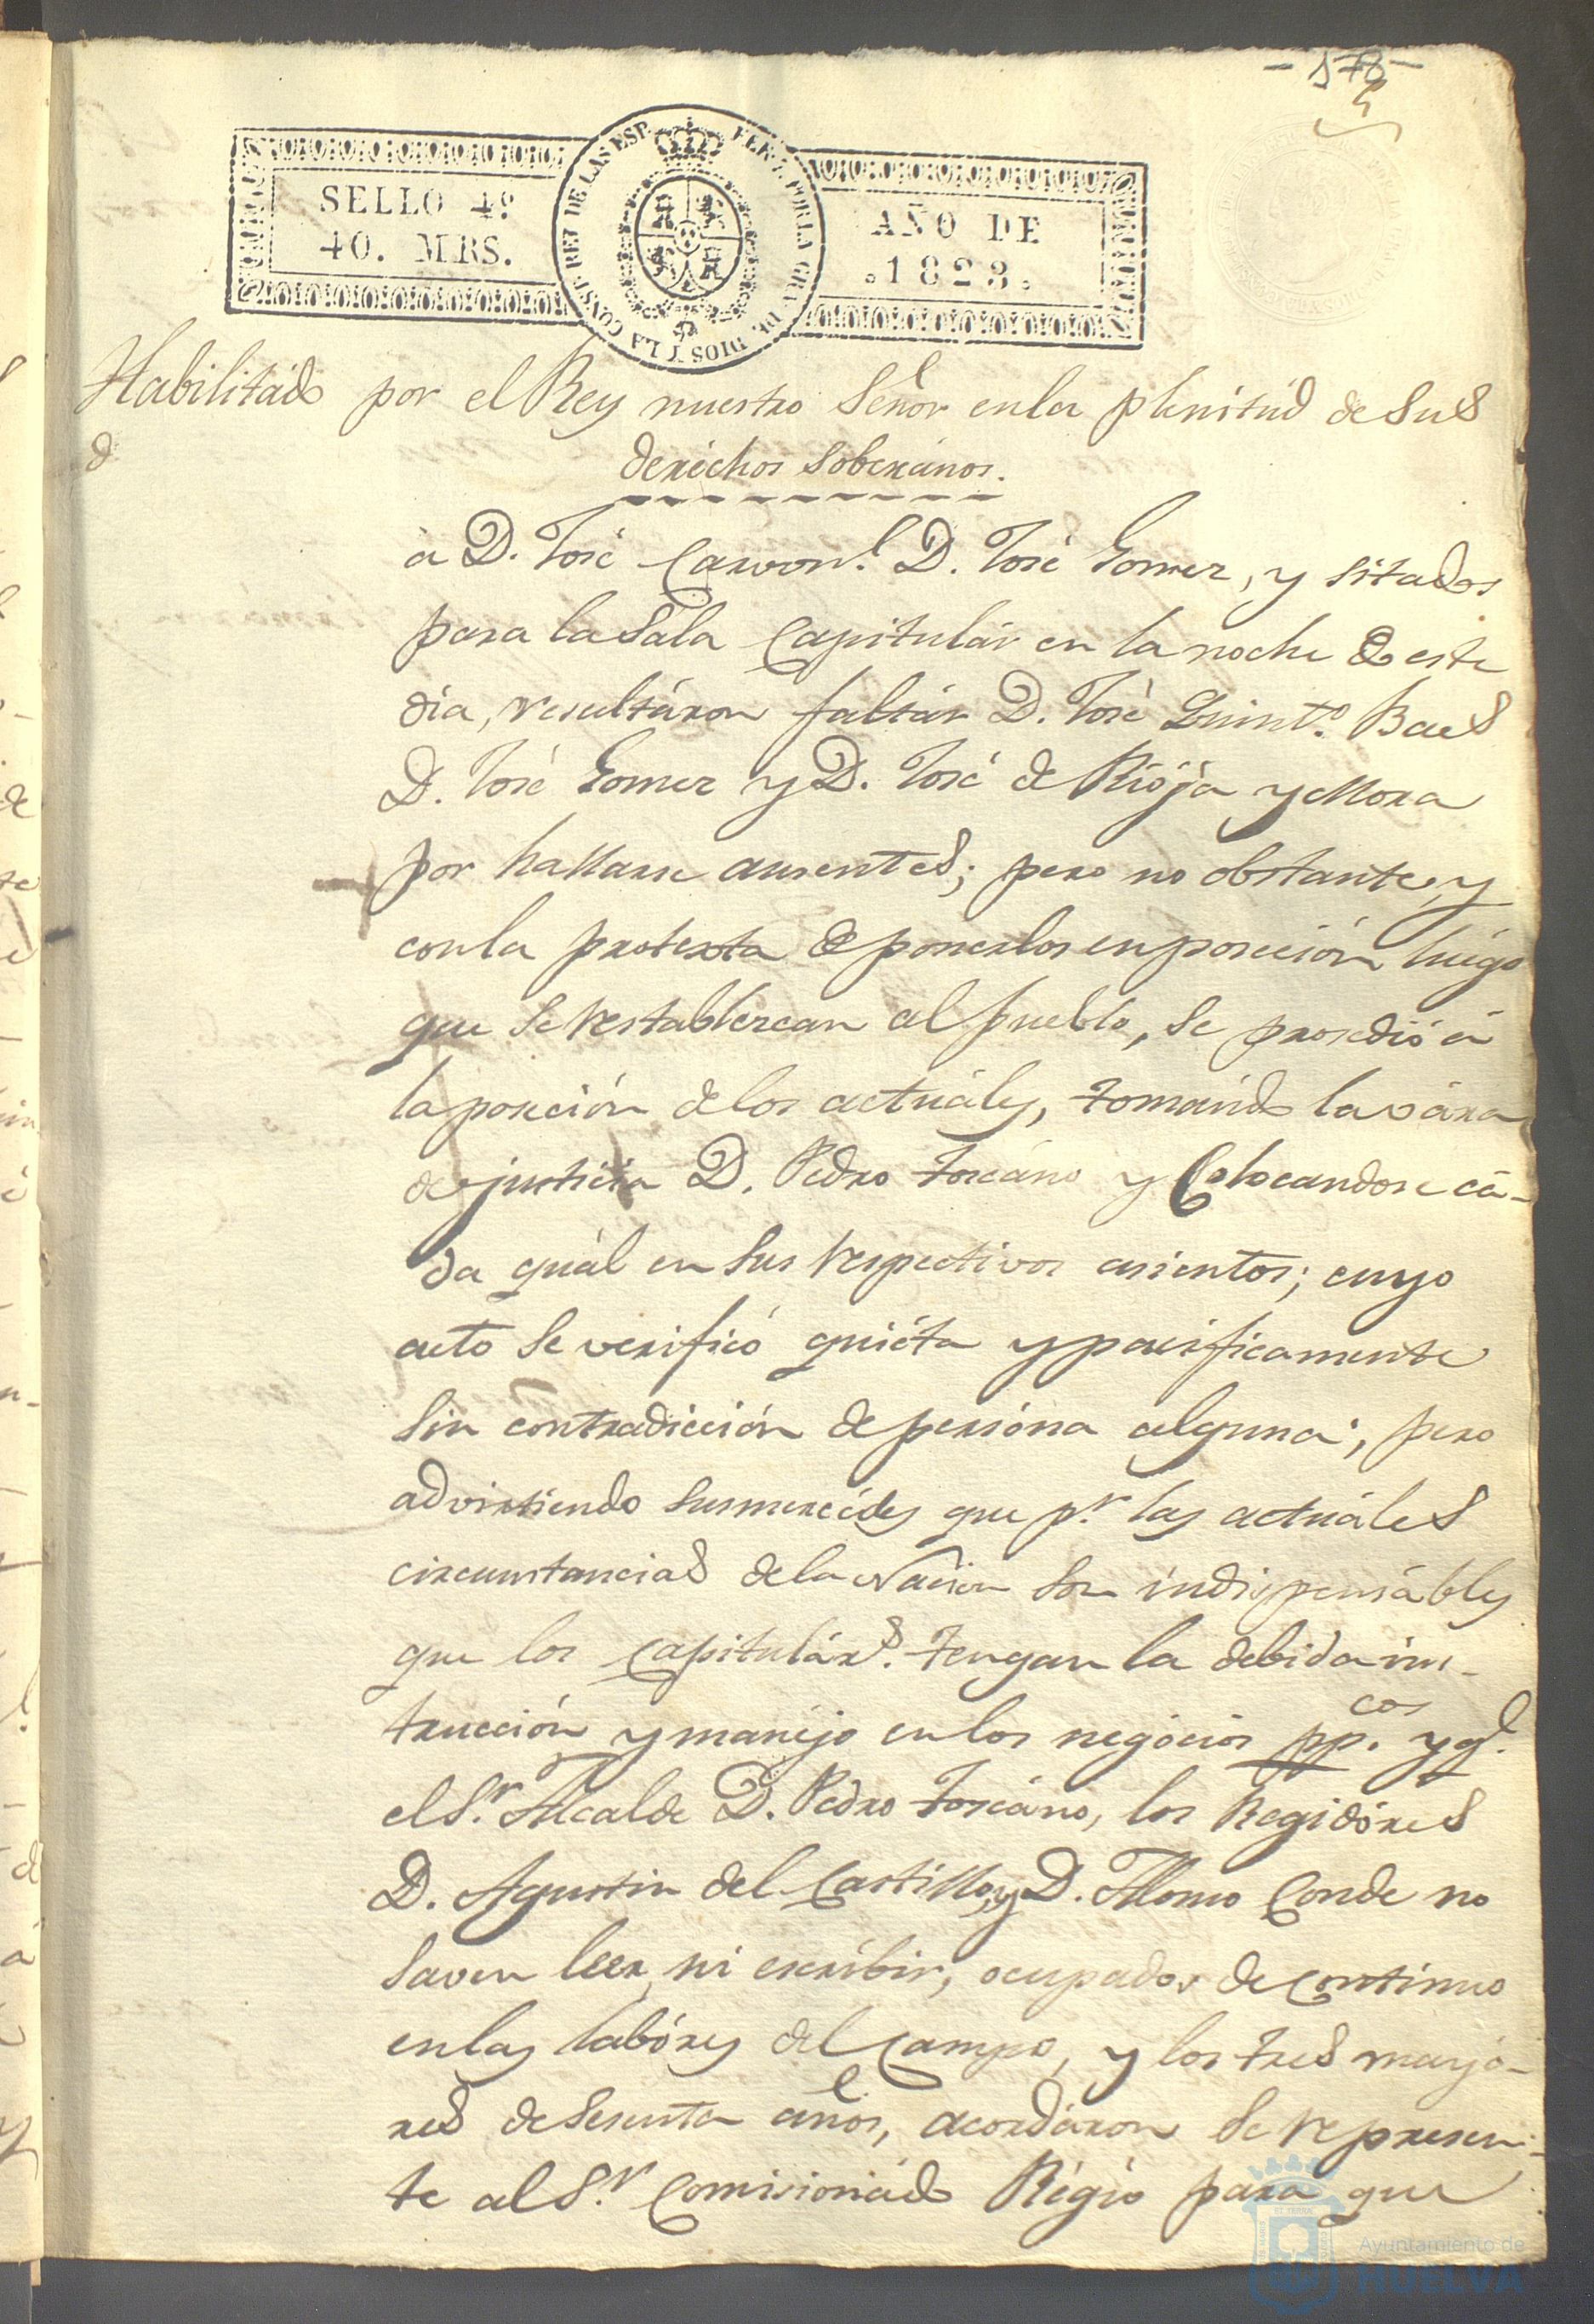 - 578 -
SELLO 4º
40. MRS.
FERN. 7. POR LA GR. DE DIOS Y LA CONST. REY DE LAS ESP.
AÑO DE
.1823.
Habilitádo por el Rey nuestro Señor en la plenitúd de sus
derechos soberános.
à D. José Carvonl. D. José Gomez, y sitados
para la Sala Capitulár en la noche de este
dia, resultáron faltár D. José Quintº. Baes
D. José Gomez y D. José de Riója y Mora
por hallarse ausentes; pero no obstante, y
con la protexta de ponerlos en poseción luégo
que se restablezcan al pueblo, se prosedió á
la poseción de los actuáles, tomándo la vára
de justicia D. Pedro Toscáno y Colocandose cá-
da quál en sus respectivos asientos; cuyo
acto se verificó quiéta y pacificamente
sin contradicción de persóna alguna; pero
advirtiendo susmercédes que pr. las actuáles
circunstancias de la Nacion son indispensábles
que los capituláres. tengan la debida ins-
trucción y manéjo en los negócios ppcos. y ql.
el Sr. Alcalde D. Pedro Toscáno, los Regidóres
D. Agustin del Castillo, y D. Alonso Conde no
saven leer ni escríbir, ocupados de continuo
en las labóres del Campo, y los tres mayó-
res de sesenta años, acordáron se represen-
te al Sr. Comisionádo Régio para que
Ayuntamiento de
HUELVA